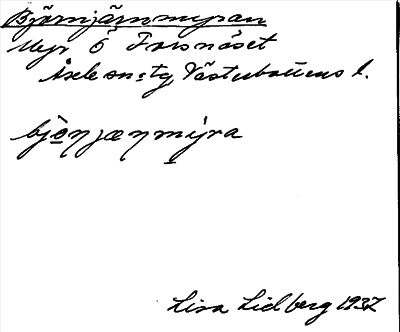 Björnjärnmyran
Myr Ö Forsnäset
Åsele sn o tg, Västerbottens l.
bjö̀ŋjæŋmýra
Lisa Lidberg 1937